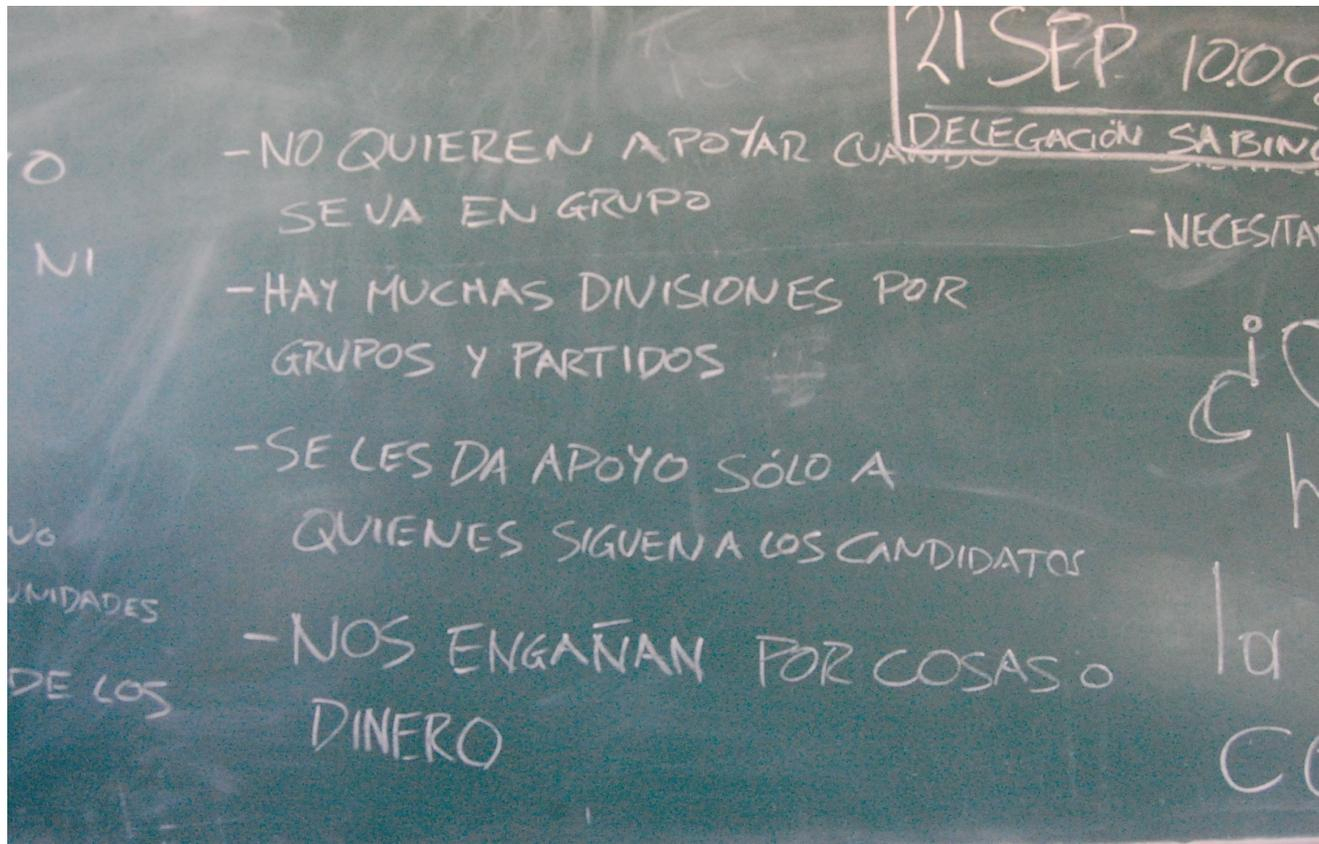 21 SEP. 10:00
DELEGACIÓN SABINO
O
NI
DE LOS
- NO QUIEREN APOYAR CUANDO
SE VA EN GRUPO
- HAY MUCHAS DIVISIONES POR
GRUPOS Y PARTIDOS
- SE LES DA APOYO SÓLO A
QUIENES SIGUEN A LOS CANDIDATOS
- NOS ENGAÑAN POR COSAS O
DINERO
- NECESITA
la